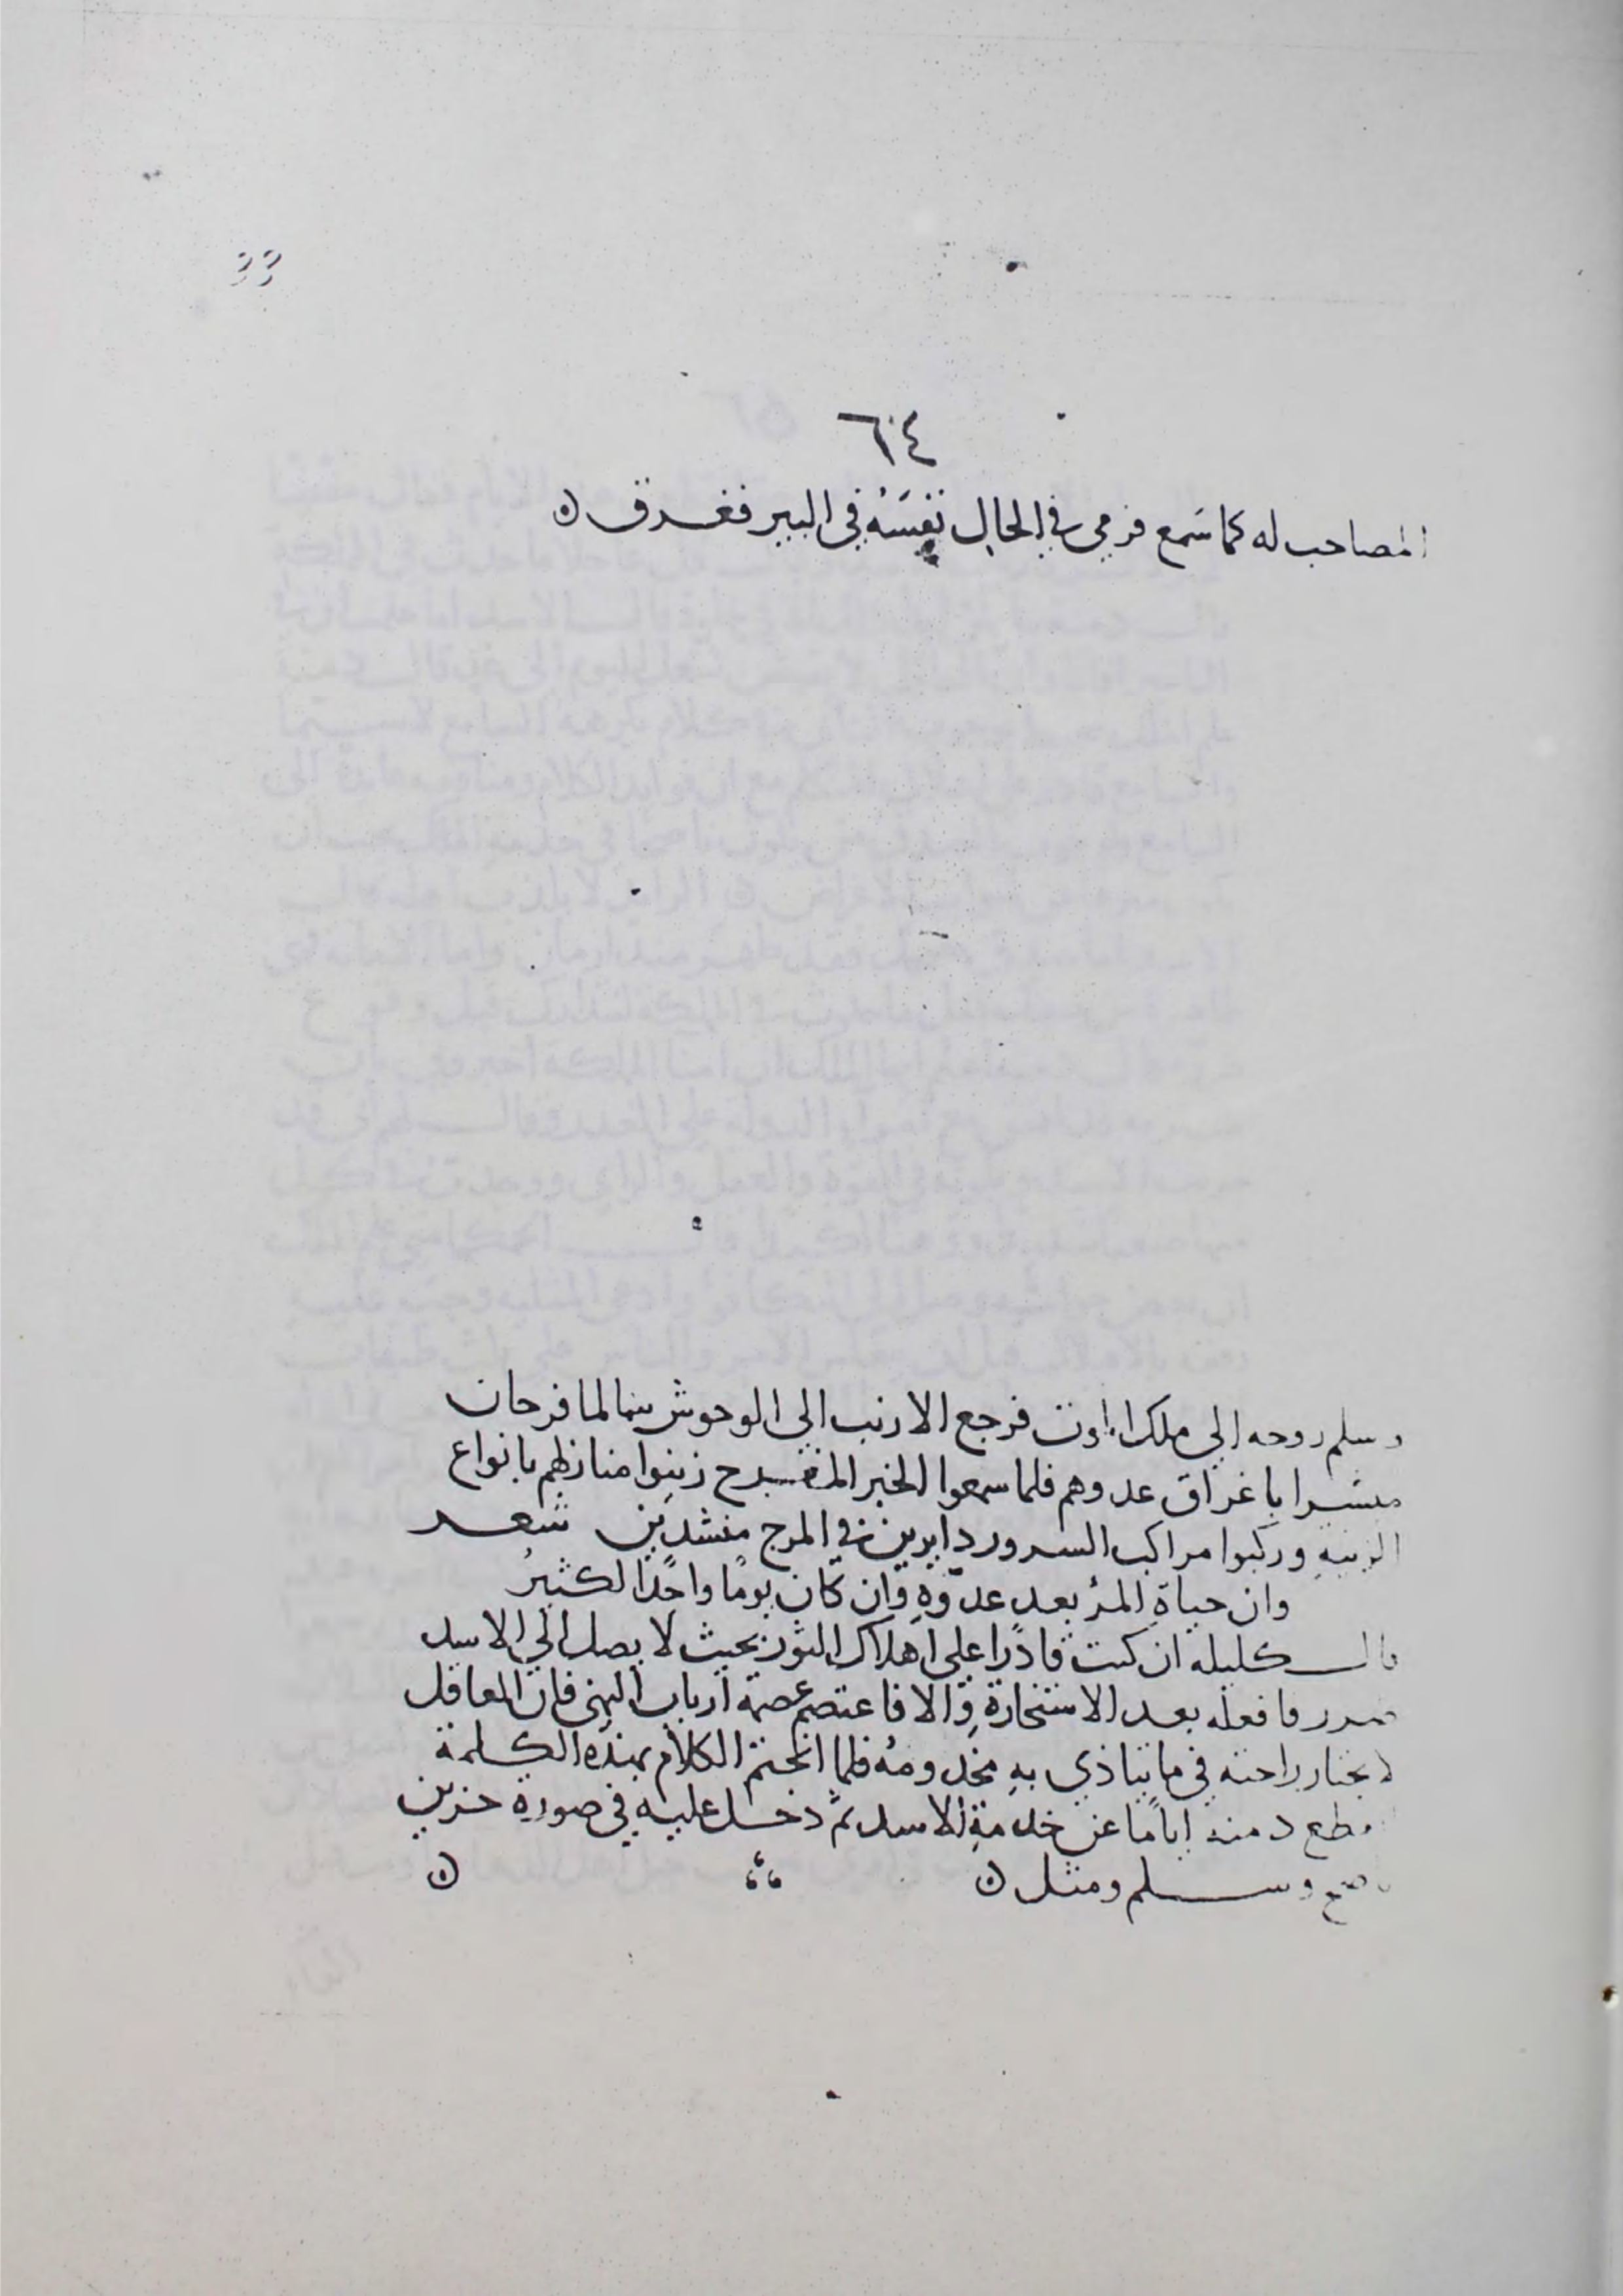 ٦٤
المصاحب له كما سمع فرمى في الحال نفسَهُ في البير فغرق
وسلم روحه الي ملك الموت فرجع الارنب الى الوحوش سالما فرحان
مبشرا باغراق عدوهم فلما سمعوا الخبر المفرح زينوا منازلهم بانواع
الزينه وركبوا مراكب السرور دايرين في المرج منشدين شعر
وان حياة المرُ بعد عدوّهِ وان كان يومًا واحدًا لكثيرُ
قال كليله ان كنت قادرًا على اهلاك الثور بحيث لا يصل الي الاسد
ضرر فافعله بعد الاستخارة والا فاعتصم عصمة ارباب النهى فان العاقل
لا يختار راحته في ما يتاذي به مخدومهُ فلما انختم الكلام بهذه الكلمة
انقطع دمنه اياما عن خدمة الاسد ثم دخل عليه في صورة حزين
وسلم ومثل